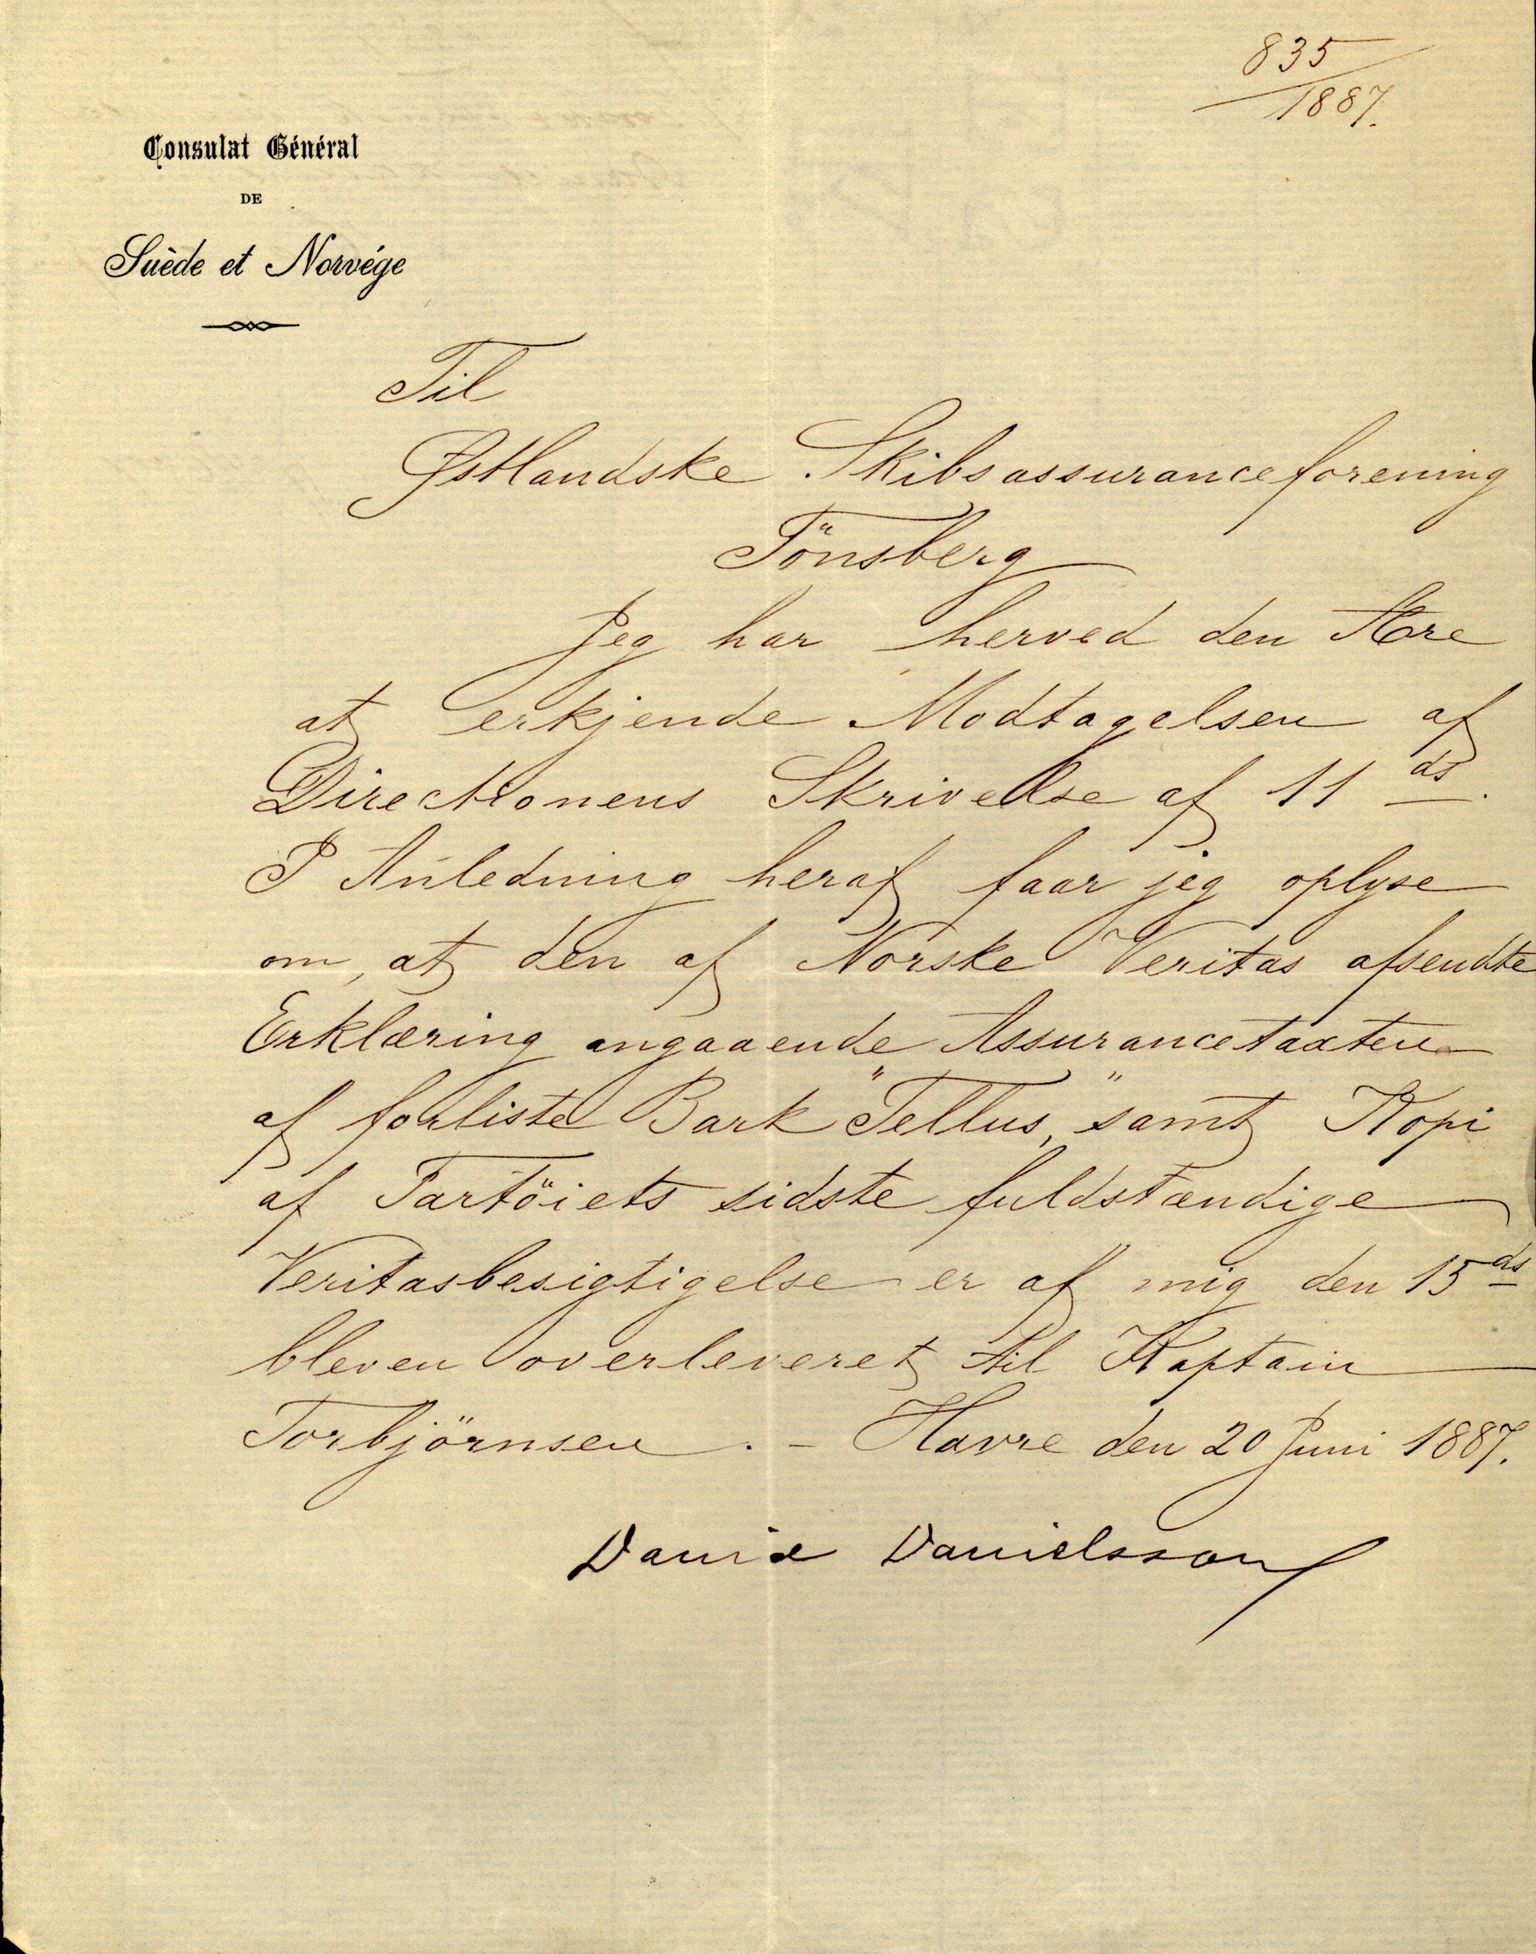 835
1887.
Consulat Général
DE
Suède et Norvége
Til
Østlandske Skibsassuranceforening
Tönsberg
Jeg har herved den Ære
at erkjende Modtagelsen af
Directionens Skrivelse af 11 ds.
I Anledning heraf faar jeg oplyse
om, at den af Norske Veritas afsendte
Erklæring angaaende Assurancetaxten
af forliste Bark "Tellus," samt Kopi
af Fartöiets sidste fuldstændige
Veritasbesigtigelse er af mig den 15 ds
bleven overleveret til Kaptain
Torbjörnsen. - Havre den 20 Juni 1887.
David Danielsson